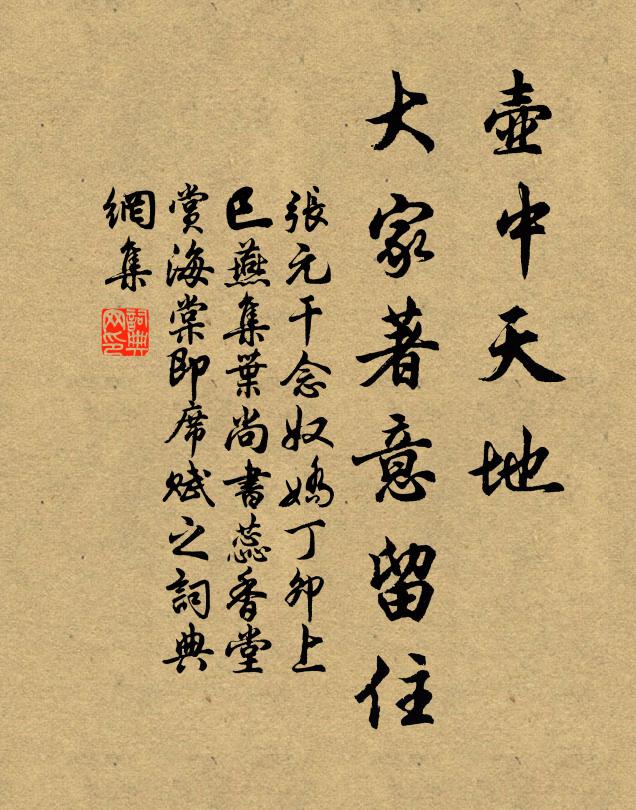 壺中天地
大家著意留住
張元干念奴嬌丁卯上
巳燕集葉尚書蕊香堂
賞海棠即席賦之詞典
網集
詞典網印